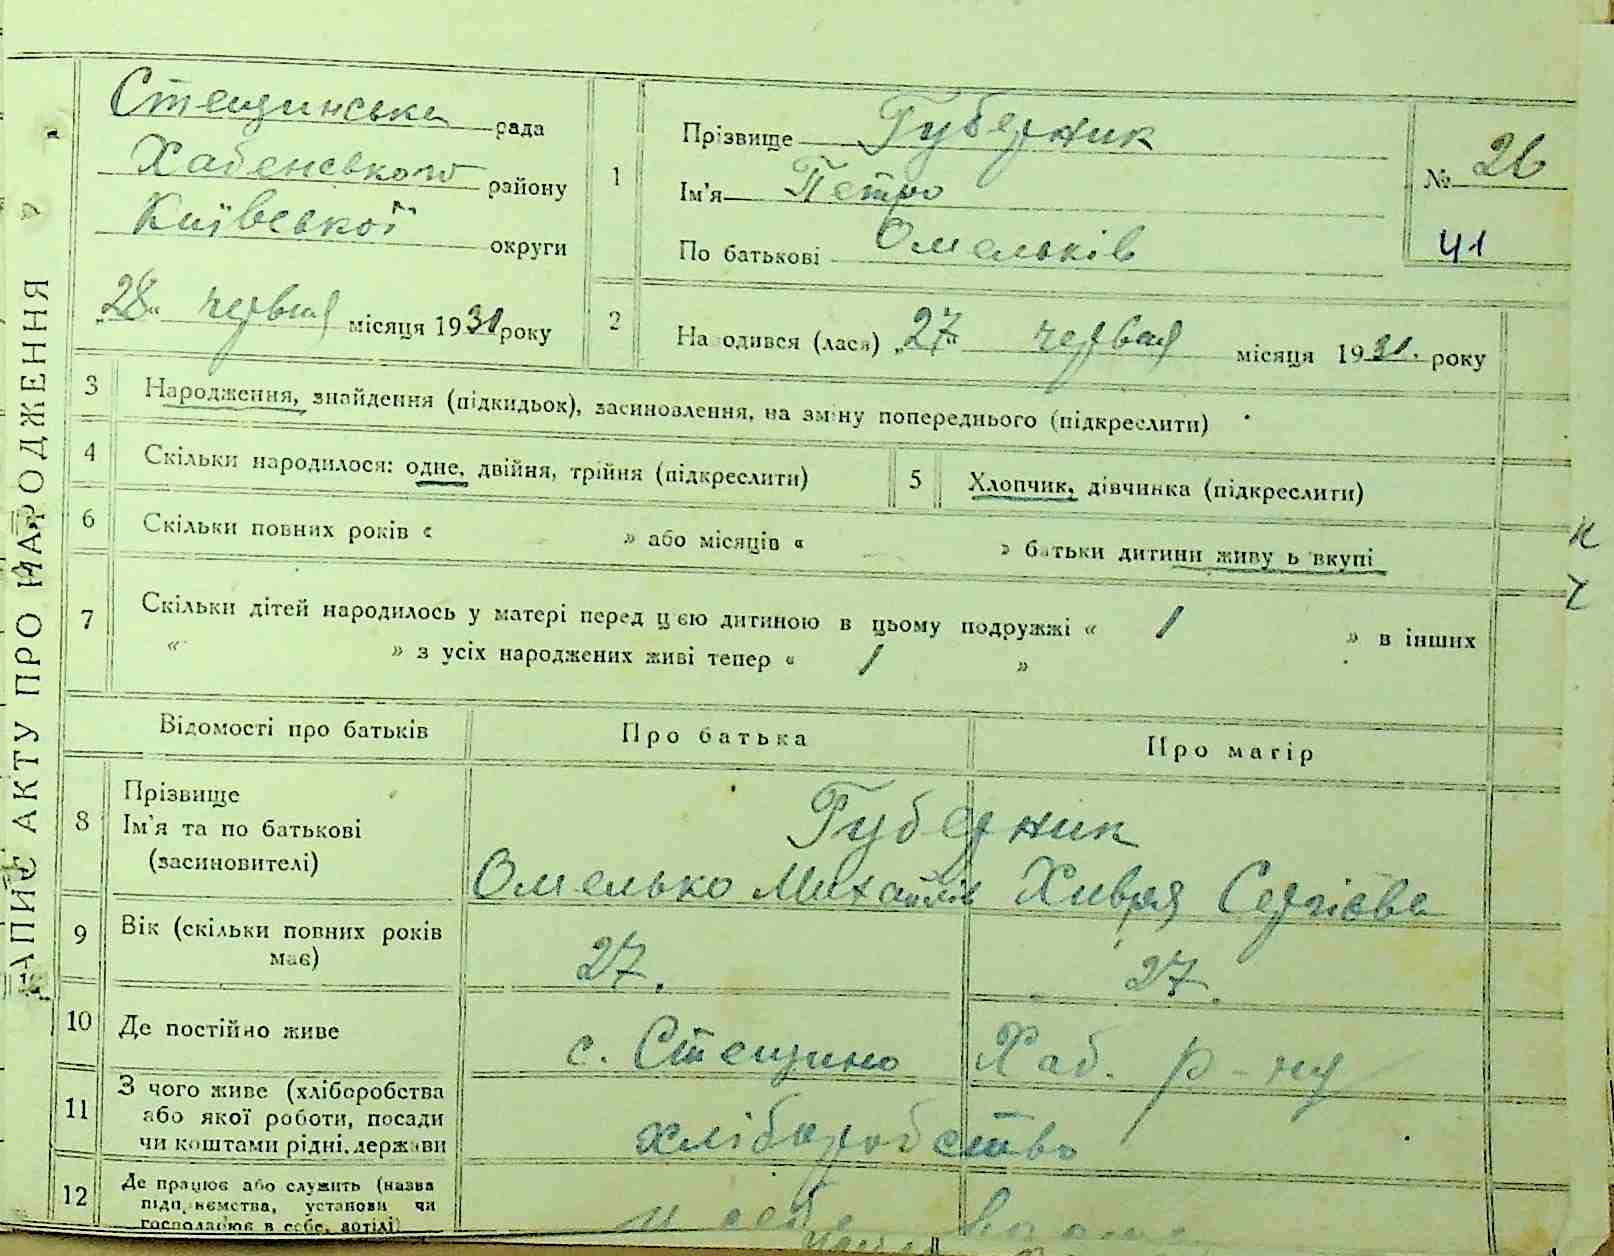 ЗАПИС АКТУ ПРО НАРОДЖЕННЯ
Стещинська рада
Хабенського району
Київської округи
„28“ червня місяця 1931 року
1
Прізвище Губерник
Ім'я Петро
По батькові Омельків
№ 26
41
2
Народився (лася) „27“ червня місяця 1931. року
3 Народження, знайдення (підкидьок), засиновлення, на зміну попереднього (підкреслити)
4 Скільки народилося: одне, двійня, трійня (підкреслити)
5 Хлопчик, дівчинка (підкреслити)
6 Скільки повних років « » або місяців « » батьки дитини живуть вкупі
7 Скільки дітей народилось у матері перед цією дитиною в цьому подружжі « 1 » в інших
« » з усіх народжених живі тепер « 1 »
Відомості про батьків Про батька Про матір
8 Прізвище
Ім'я та по батькові
(засиновителі)
Губерник
Омелько Михайлів Хивря Сергієва
9 Вік (скільки повних років
має)
27. 27.
10 Де постійно живе с. Стещино Хаб. р-ну
11 З чого живе (хліборобства
або якої роботи, посади
чи коштами рідні, держави
хліборобство
12 Де працює або служить (назва
підприємства, установи чи
господарює в себе, артілі)